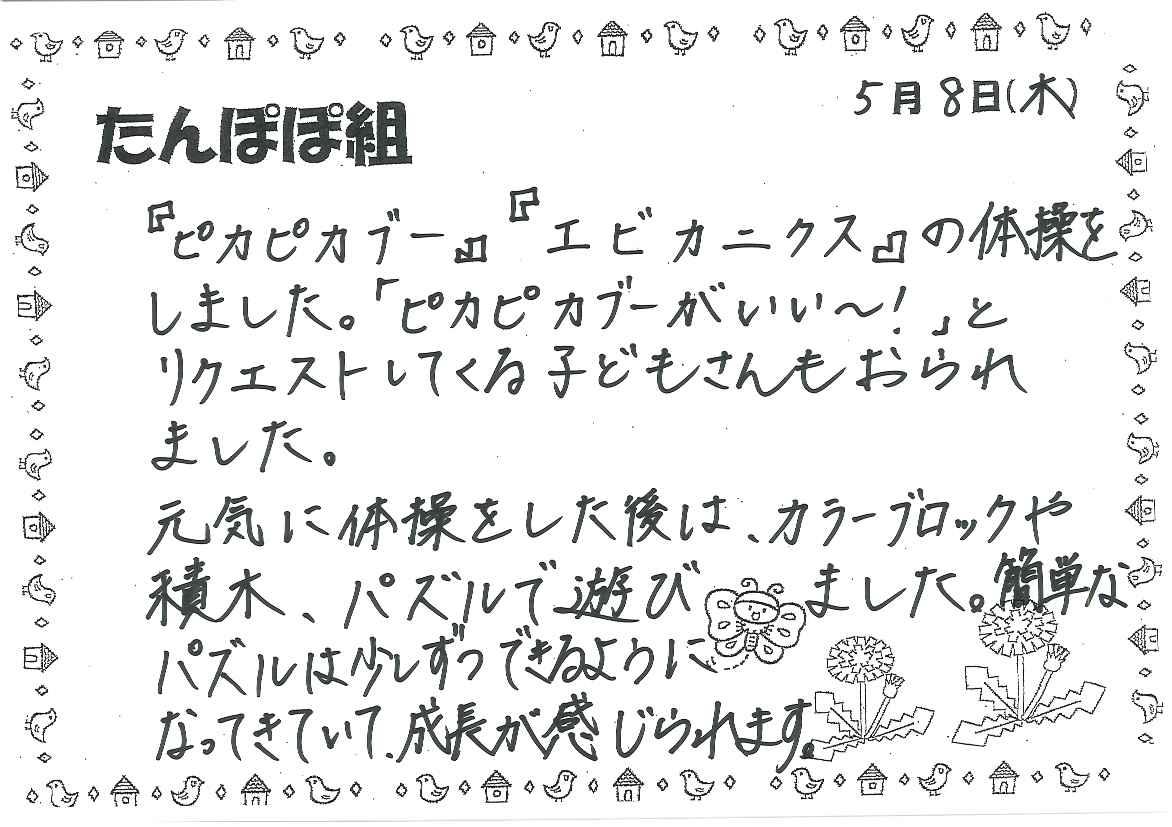 5月8日(木)
たんぽぽ組
『ピカピカブー』『エビカニクス』の体操を
しました。「ピカピカブーがいい～!」と
リクエストしてくる子どもさんもおられ
ました。
元気に体操をした後は、カラーブロックや
積木、パズルで遊びました。簡単な
パズルは少しずつできるように
なってきていて、成長が感じられます。